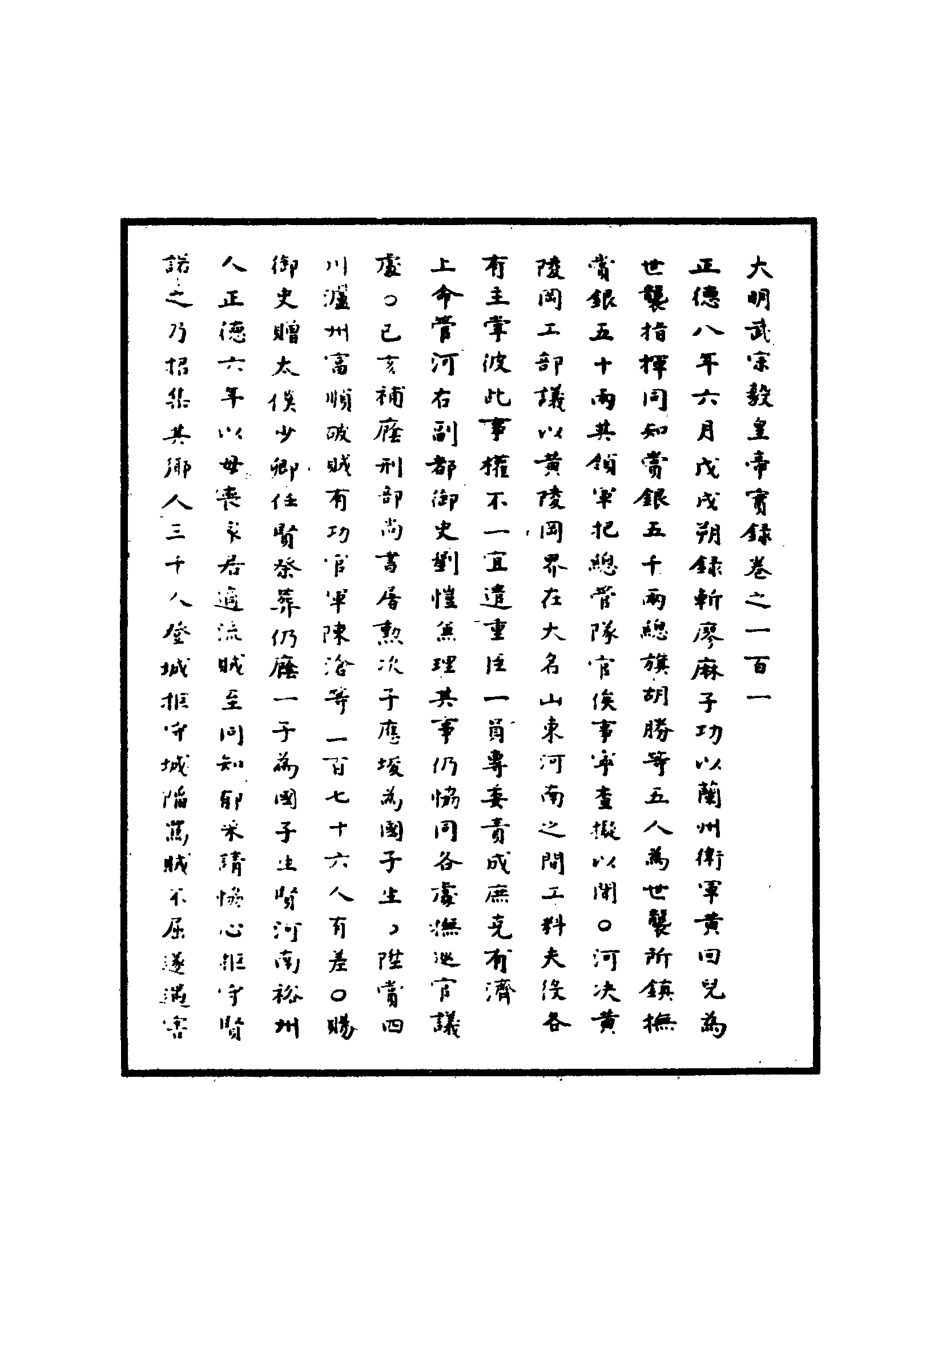 大明武宗毅皇帝實錄卷之一百一
正德八年六月戊戌朔錄斬廖麻子功以蘭州衛軍黃回兒為
世襲指揮同知賞銀五十兩總旗胡勝等五人為世襲所鎮撫
賞銀五十兩其領軍把總管隊官俟事寧查擬以聞○河決黃
陵岡工部議以黃陵岡界在大名山東河南之間工料夫役各
有主掌彼此事權不一宜遣重臣一員專委責成庶克有濟
上命管河右副都御史劉愷兼理其事仍恊同各處撫巡官議
處○己亥補廕刑部尚書屠勲次子應埈為國子生○陞賞四
川瀘州富順破賊有功官軍陳洽等一百七十六人有差○賜
御史贈太僕少卿任賢祭葬仍廕一子為國子生賢河南裕州
人正德六年以母喪家居適流賊至同知郁采請恊心拒守賢
諾之乃招集其鄉人三千人登城拒守城陷罵賊不屈遂遇害